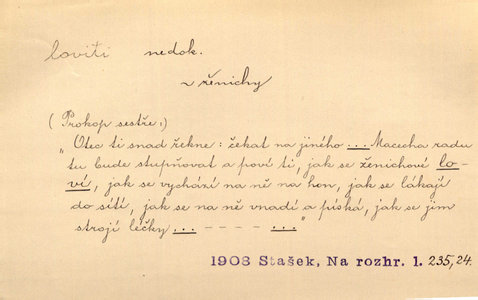 loviti nedok.
~ ženichy
(Prokop sestře:)
„Otec ti snad řekne: čekat na jiného ... Macecha radu
tu bude stupňovat a poví ti, jak se ženichové lo-
ví, jak se vychází na ně na hon, jak se lákají
do sítí, jak se na ně vnadí a píská, jak se jim
strojí léčky ... - - - - ..."
1908 Stašek, Na rozhr. 1. 235,24.